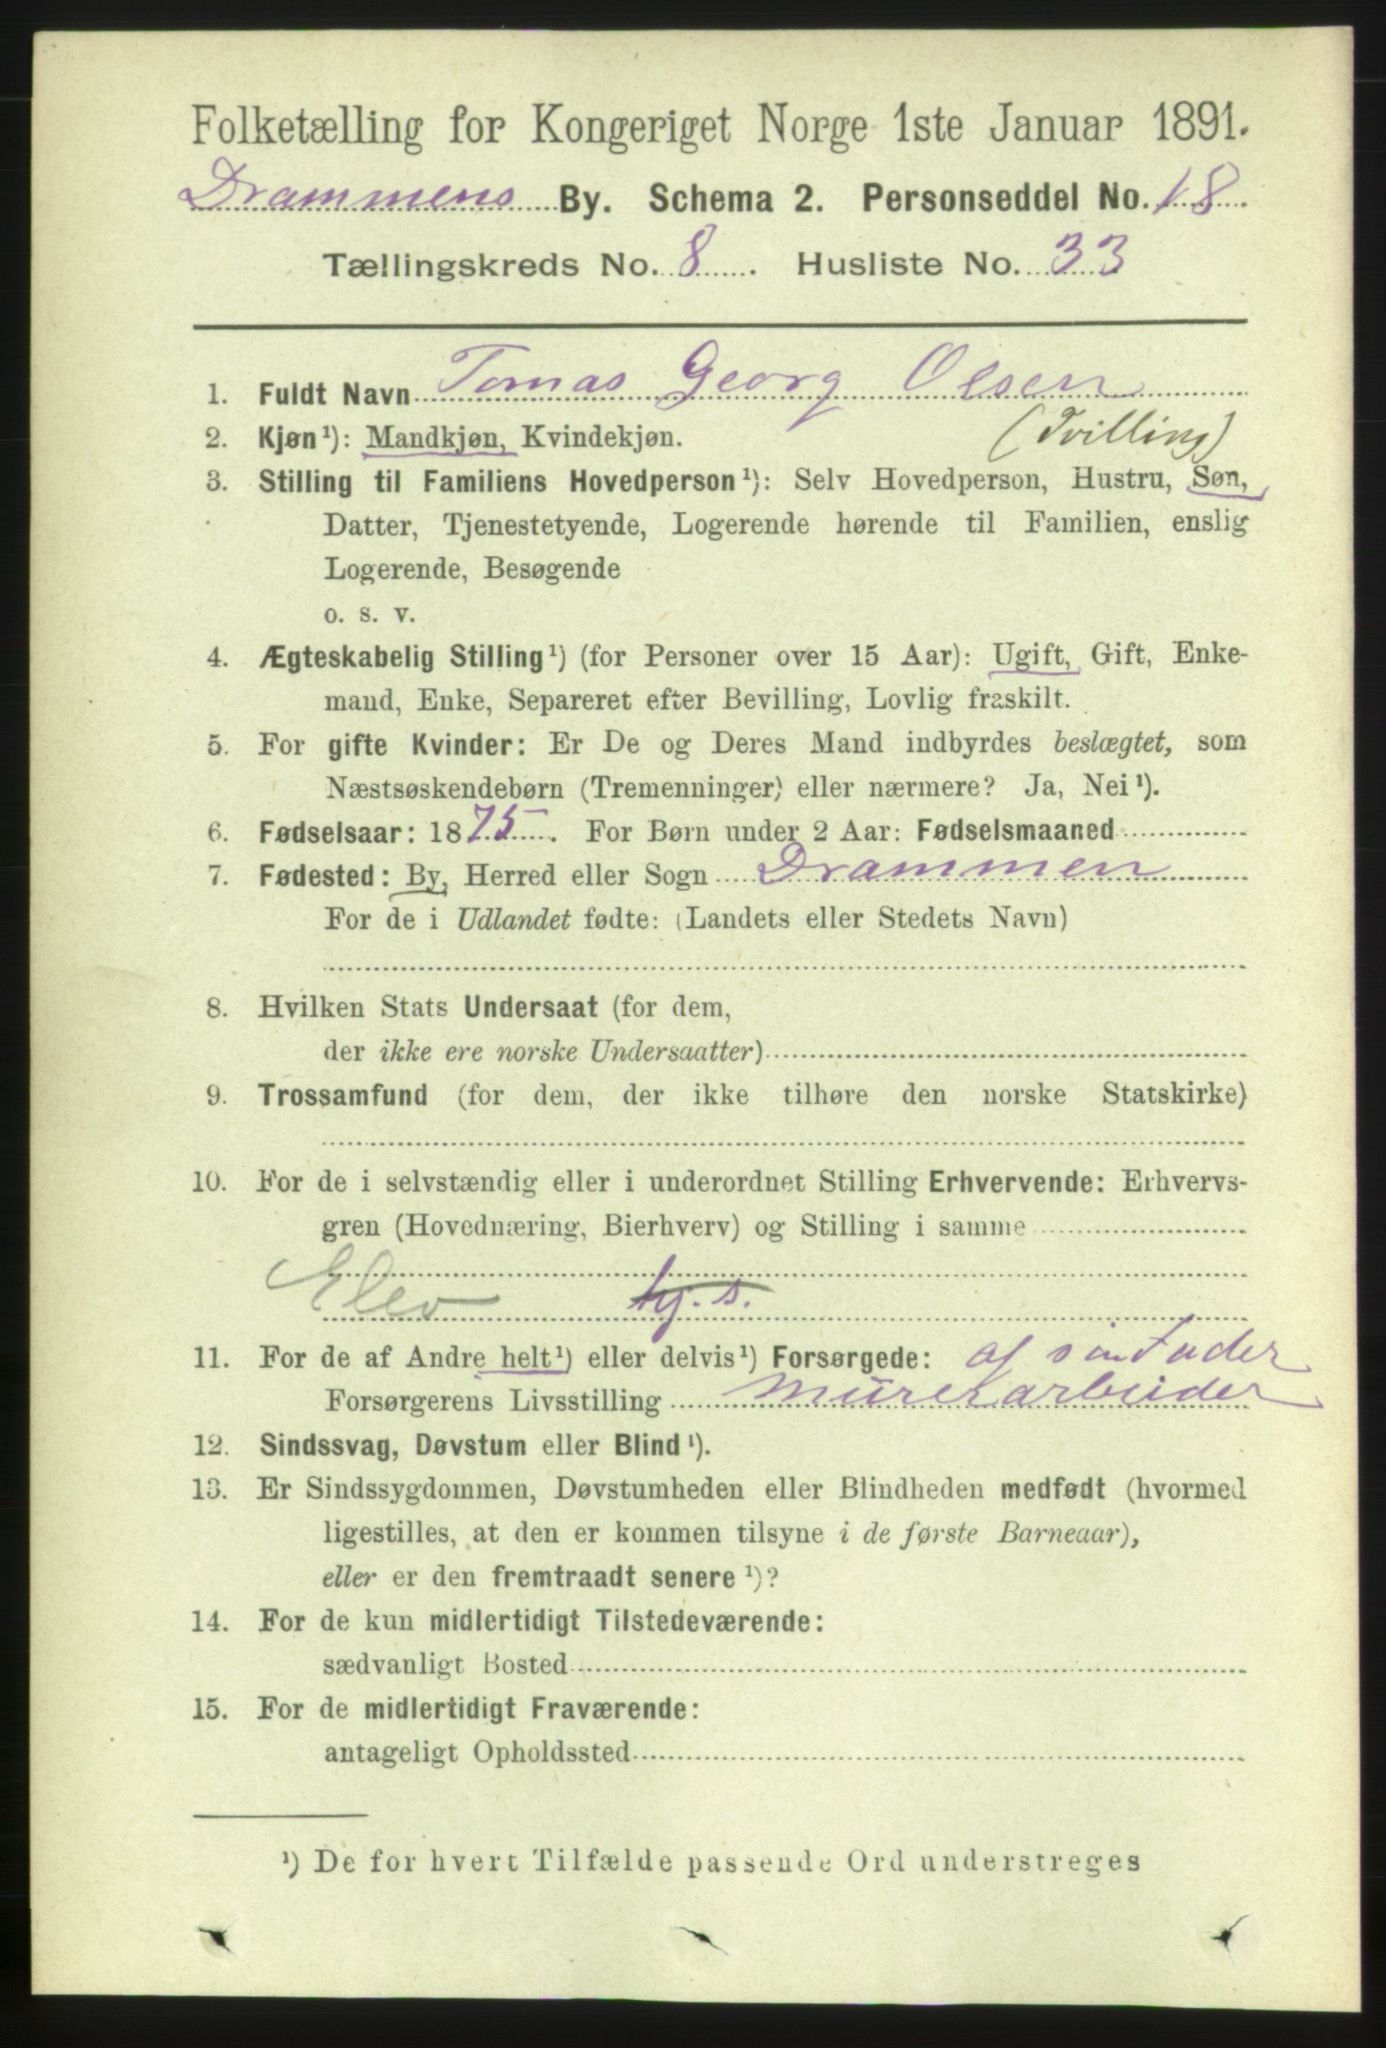 Folketælling for Kongeriget Norge 1ste Januar 1891.
Drammens By. Schema 2. Personseddel No. 18.
Tællingskreds No. 8. Husliste No. 33
1. Fuldt Navn Tomas Georg Olsen
2. Kjøn¹): Mandkjøn, Kvindekjøn. (Tvilling)
3. Stilling til Familiens Hovedperson¹): Selv Hovedperson, Hustru, Søn,
Datter, Tjenestetyende, Logerende hørende til Familien, enslig
Logerende, Besøgende
o. s. v.
4. Ægteskabelig Stilling¹) (for Personer over 15 Aar): Ugift, Gift, Enke-
mand, Enke, Separeret efter Bevilling, Lovlig fraskilt.
5. For gifte Kvinder: Er De og Deres Mand indbyrdes beslægtet, som
Næstsøskendebørn (Tremenninger) eller nærmere? Ja, Nei¹).
6. Fødselsaar: 1875. For Børn under 2 Aar: Fødselsmaaned
7. Fødested: By, Herred eller Sogn Drammen
For de i Udlandet fødte: (Landets eller Stedets Navn)
8. Hvilken Stats Undersaat (for dem,
der ikke ere norske Undersaatter)
9. Trossamfund (for dem, der ikke tilhøre den norske Statskirke)
10. For de i selvstændig eller i underordnet Stilling Erhvervende: Erhvervs-
gren (Hovednæring, Bierhverv) og Stilling i samme
Elev ty. s.
11. For de af Andre helt¹) eller delvis¹) Forsørgede: af sin Fader
Forsørgerens Livsstilling Murerarbeider
12. Sindssvag, Døvstum eller Blind¹).
13. Er Sindssygdommen, Døvstumheden eller Blindheden medfødt (hvormed
ligestilles, at den er kommen tilsyne i de første Barneaar),
eller er den fremtraadt senere¹)?
14. For de kun midlertidigt Tilstedeværende:
sædvanligt Bosted
15. For de midlertidigt Fraværende:
antageligt Opholdssted
¹) De for hvert Tilfælde passende Ord understreges